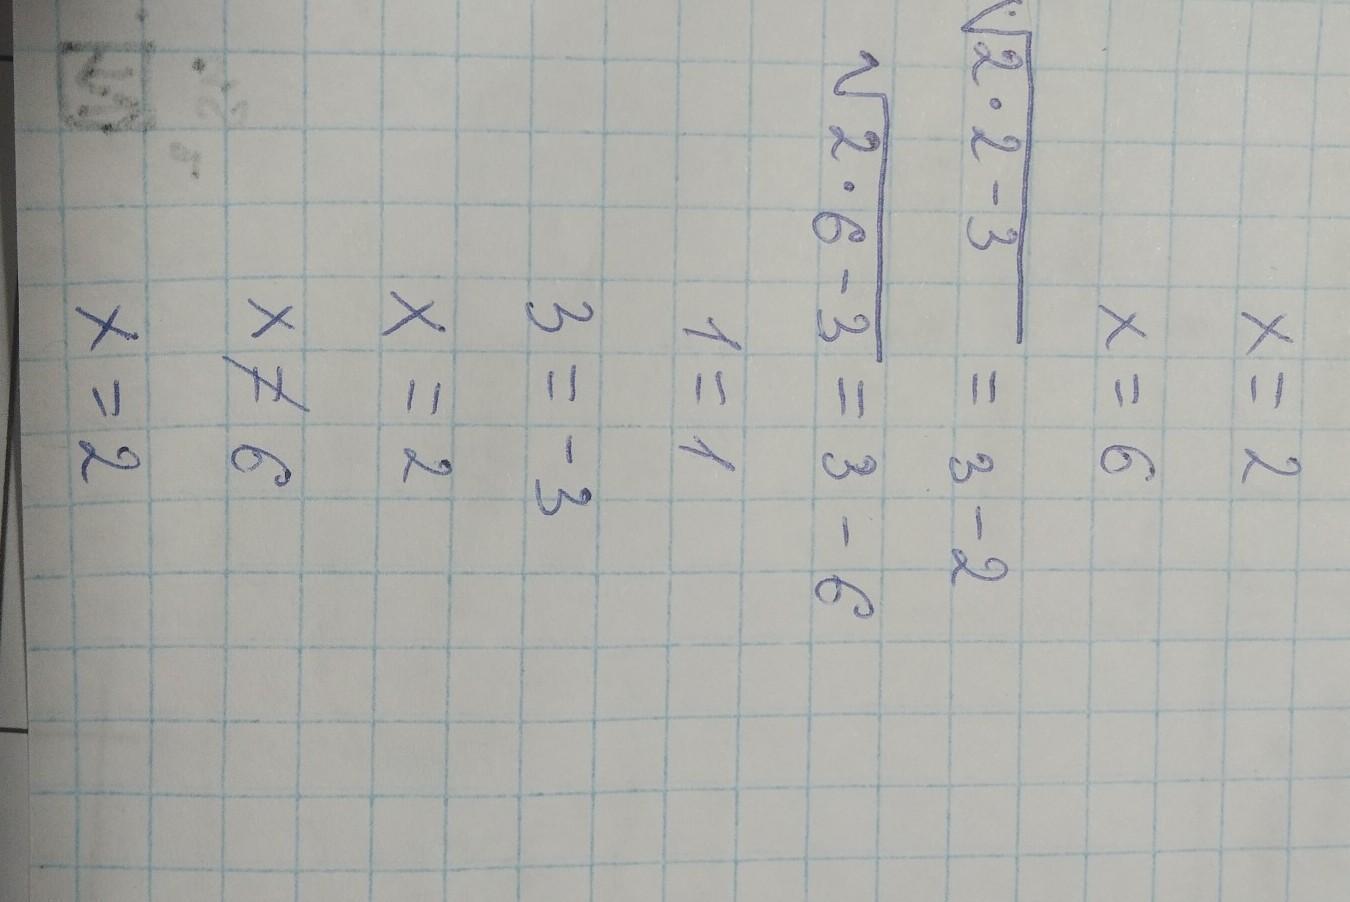 x = 2
x = 6
√2·2-3 = 3-2
√2·6-3 = 3-6
1 = 1
3 = -3
x = 2
x ≠ 6
x = 2